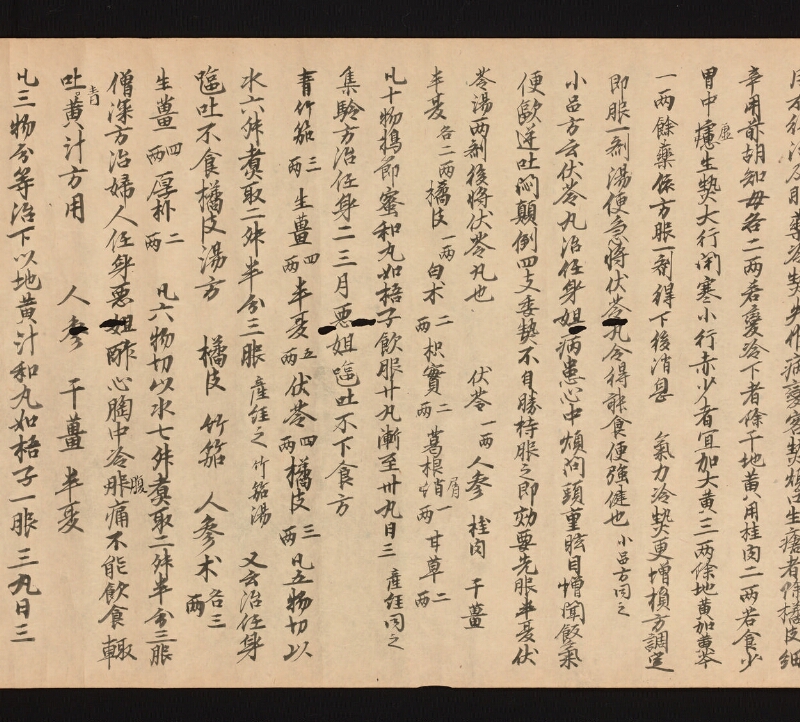 辛用前胡知母各二两若變冷下者除干地黄用桂肉二两若食少
胃中虚生熱大行閇塞小行赤少者冝加大黄三两除地黄加黄芩
一两餘藥依方服一剤得下後消息 氣力冷熱更増損方調定
即服一剤湯便急將伏苓丸令得能食便強健也 小品方同之
小品方云伏苓丸治任身姐病患心中煩悶頭重眩目憎聞飯氣
便歐逆吐悶顛倒四支委熱不自勝持服之即効要先服半夏伏
苓湯两剤後將伏苓丸也 伏苓一两 人参 桂肉 干薑
半夏各二两 橘皮一两 白术二两 枳實二两 葛根屑一两 甘草二两
凡十物檮篩蜜和丸如梧子飲服廿丸漸至卅丸日三 産経同之
集驗方治任身二三月悪姐嘔吐不下食方
青竹茹三两 生薑四两 半夏五两 伏苓四两 橘皮三两 凡五物切以
水六升煮取二升半分三服 産経之竹茹湯 又云治任身
嘔吐不食橘皮湯方 橘皮 竹茹 人参 术各三两
生薑四两 厚朴二两 凡六物切以水七升煮取二升半分三服
僧深方治婦人任身悪姐酢心胸中冷腹痛不能飲食輙
吐青黄汁方用 人参 干薑 半夏
凡三物分等治下以地黄汁和丸如梧子一服三丸日三